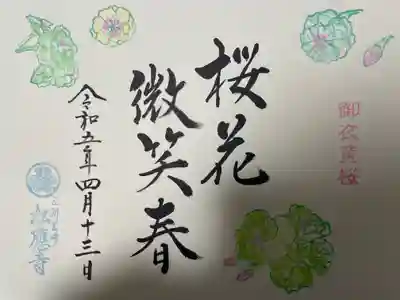 御衣黄桜
桜花
微笑春
令和五年四月十三日
松應寺